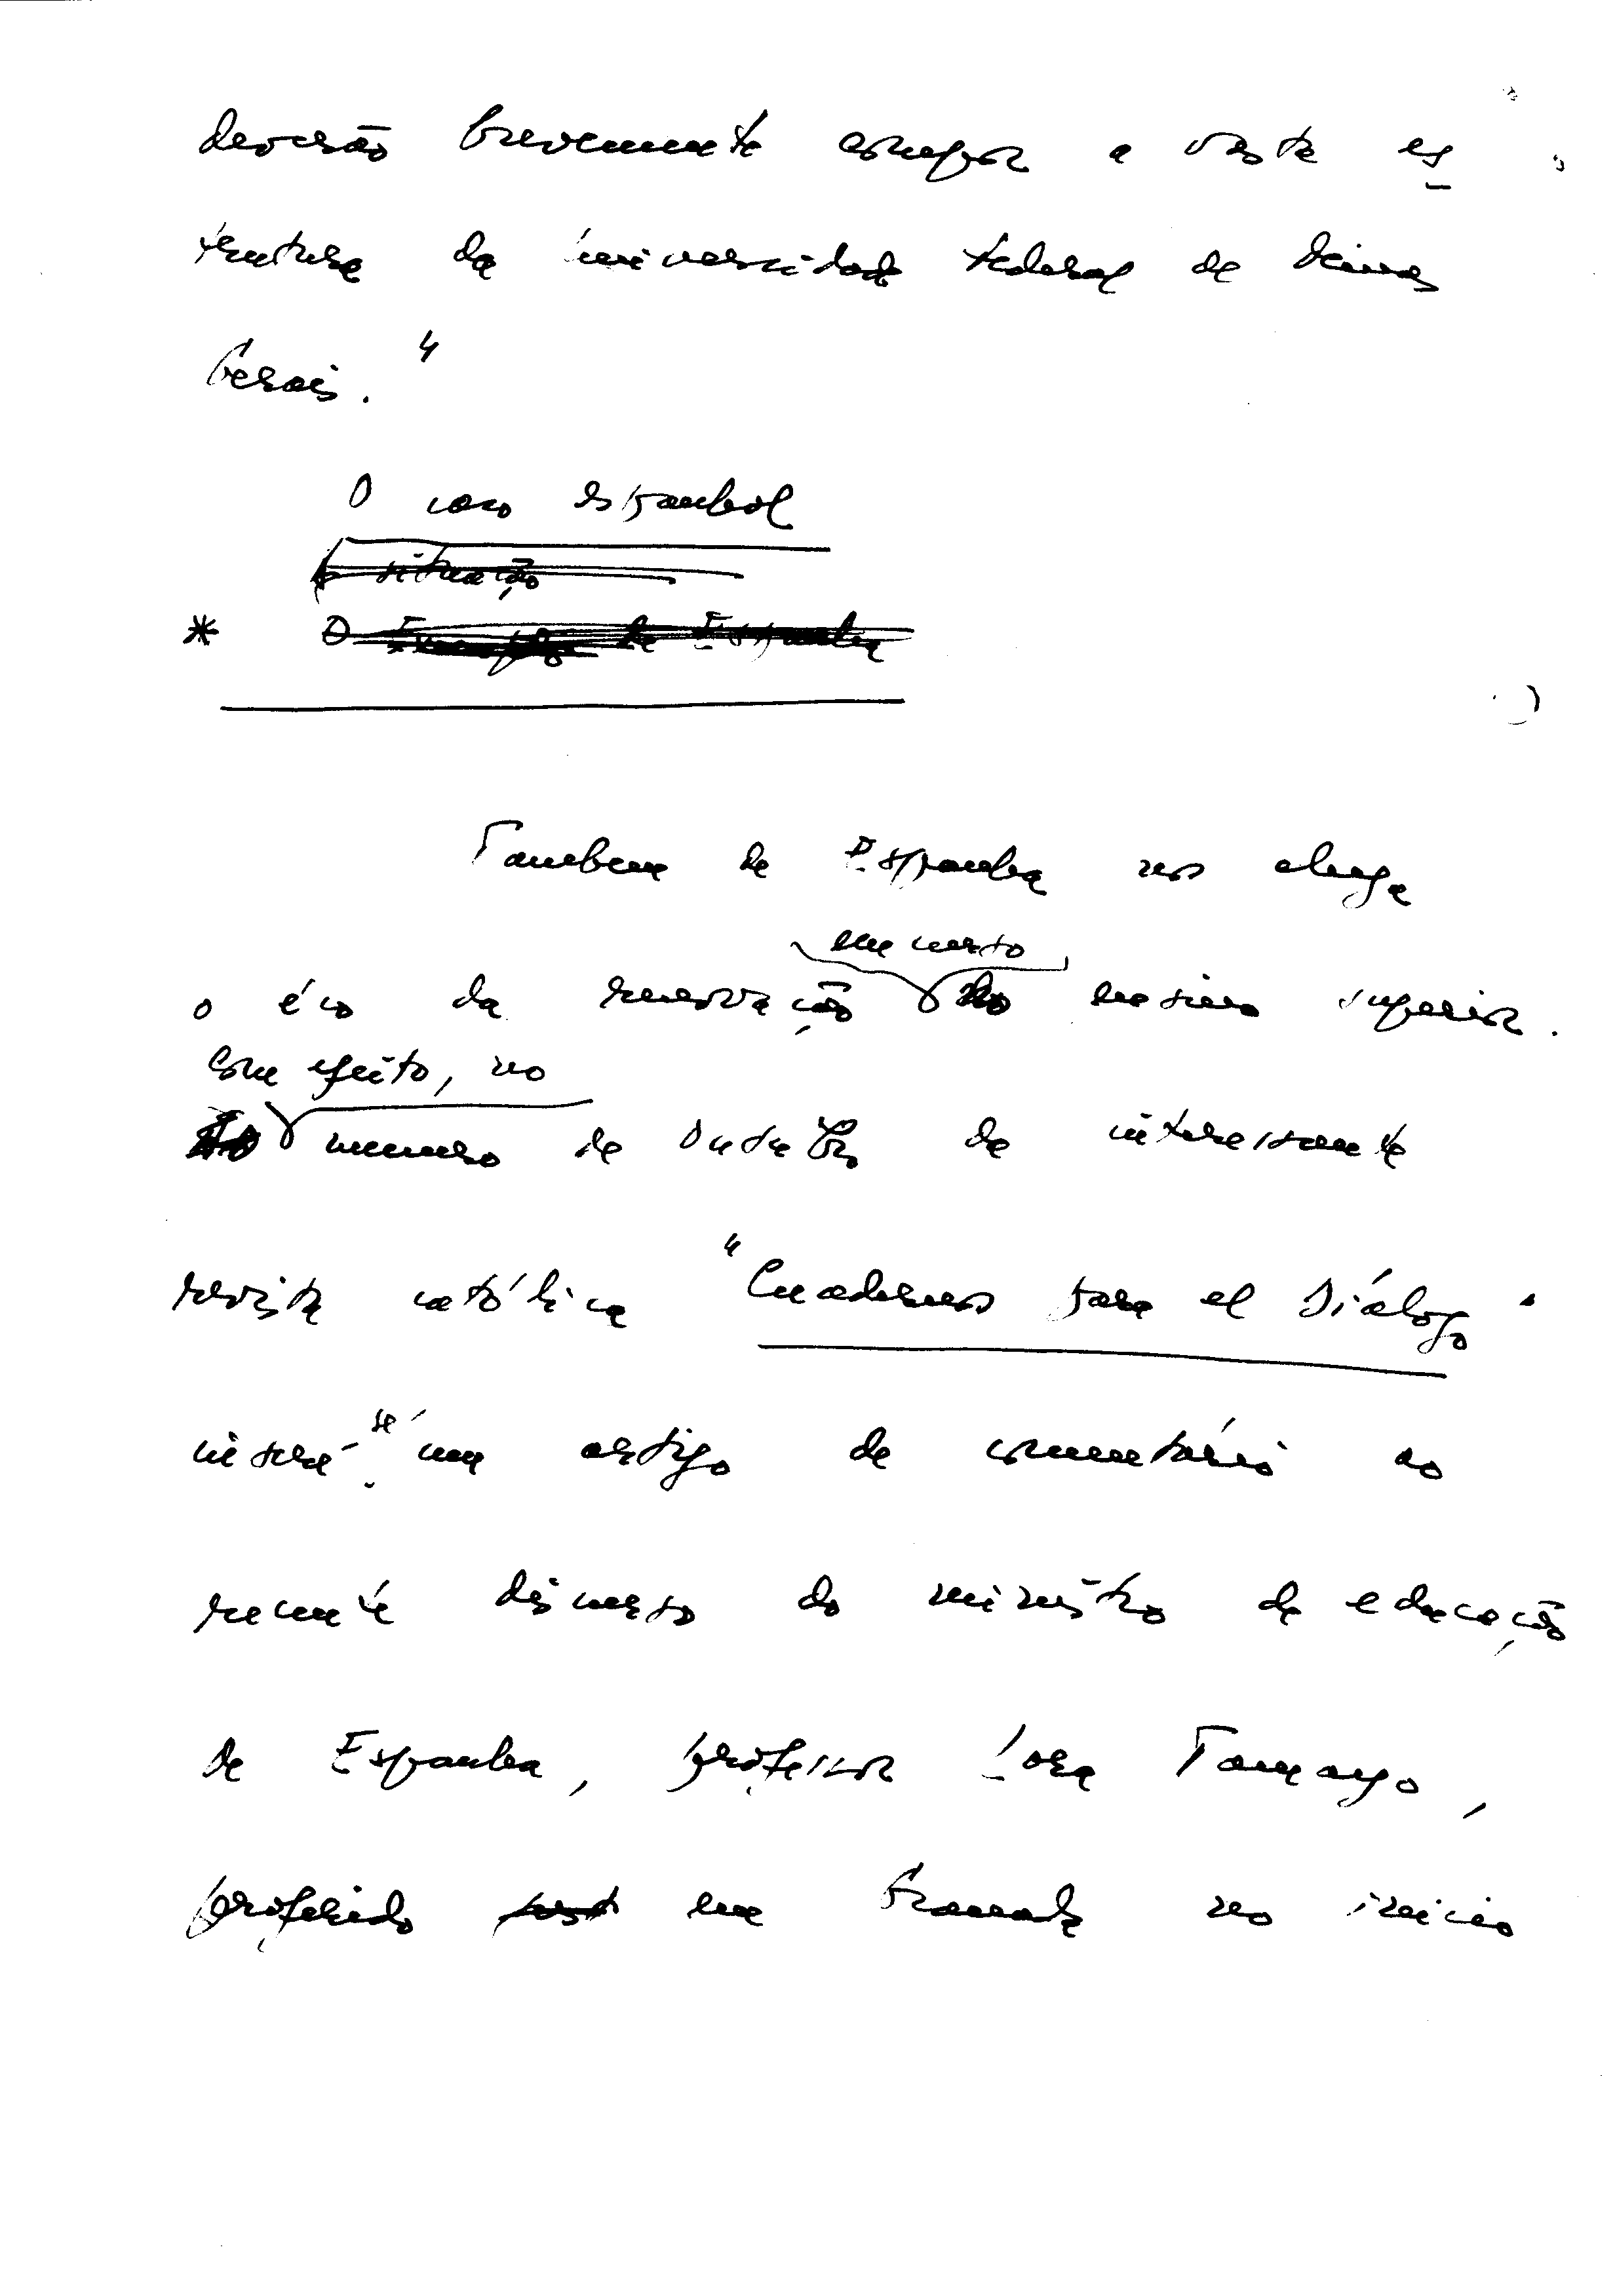 deverão brevemente compor a vasta es
trutura da Universidade Federal de Minas
Gerais."
O caso espanhol
A situação
* O Exemplo de Espanha
Também de Espanha nos chega
em curso
o éco da renovação do ensino superior.
Com efeito, no
No numero de Outubro da interessante
revista católica "Cuadernos para el Diálogo"
insere-se um artigo de comentário ao
recente discurso do ministro da educação
de Espanha, professor Lora Tamayo,
proferido em Granada no início